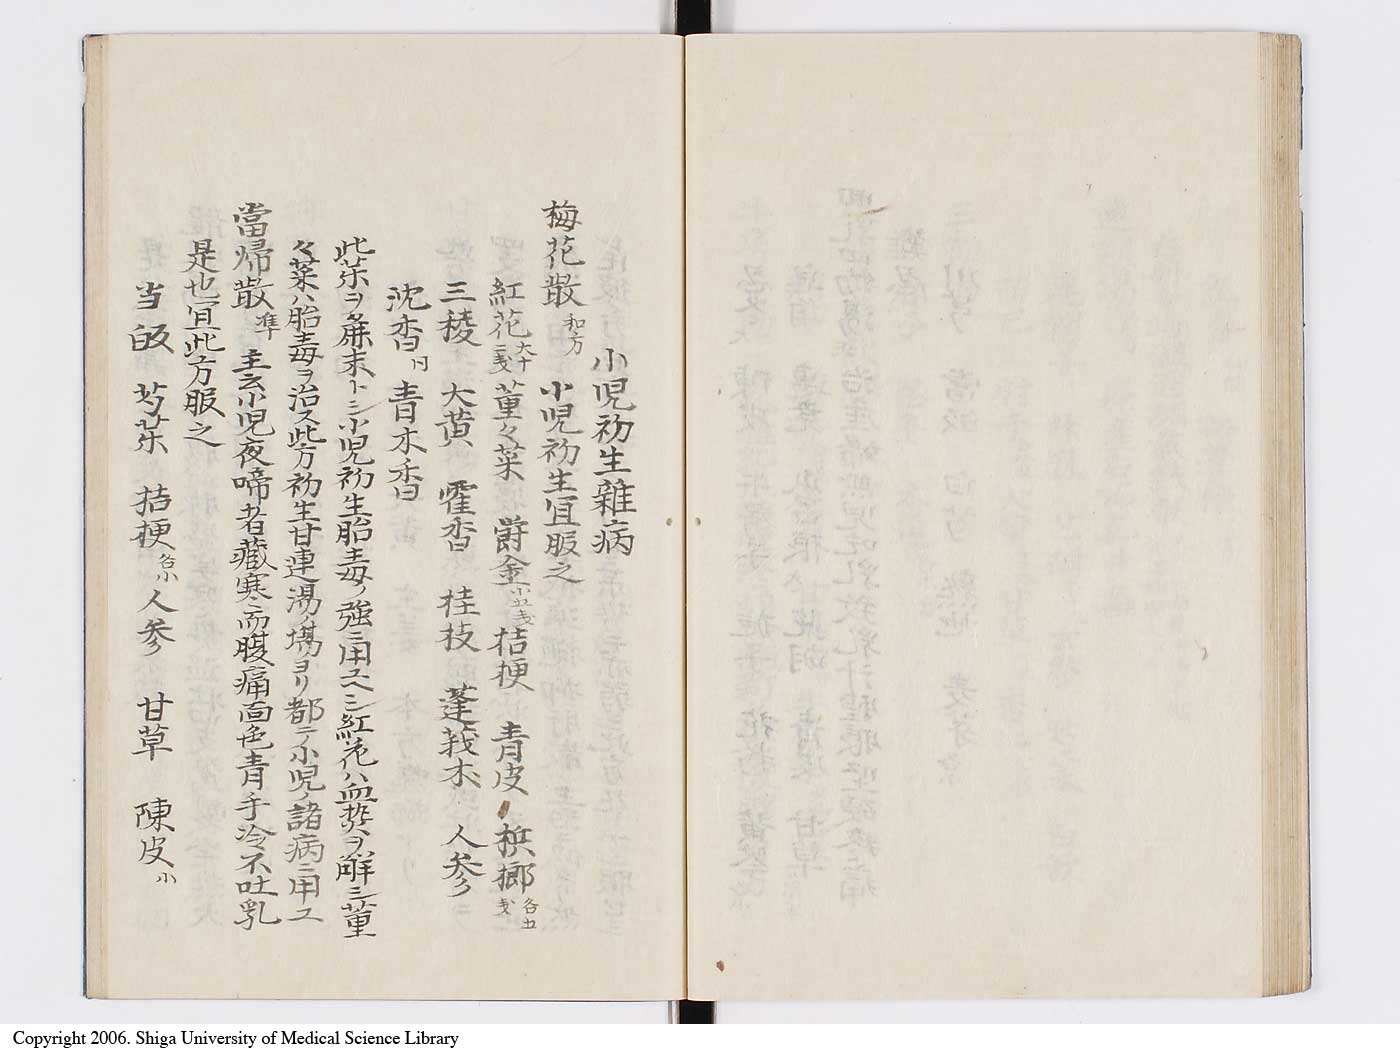 小児初生雜病
梅花散 和方 小児初生宜服之
紅花 大十二戔 菫々菜 爵金 小五戔 桔梗 青皮 梹榔 各五戔
三稜 大黄 霍香 桂枝 蓬莪朮 人参
沈香 青木香
此茶ヲ麁末トシ小児初生胎毒ノ強ニ用ユヘシ紅花ハ血熱ヲ解シ菫
々菜ハ胎毒ヲ治ス此方初生甘連湯ノ場ヨリ都テ小児ノ諸病ニ用ユ
當帰散 準 主云小児夜啼者藏寒而腹痛面色青手冷不吐乳
是也宜此方服之
当皈 芍茶 桔梗 各小 人参 甘草 陳皮 小
Copyright 2006. Shiga University of Medical Science Library